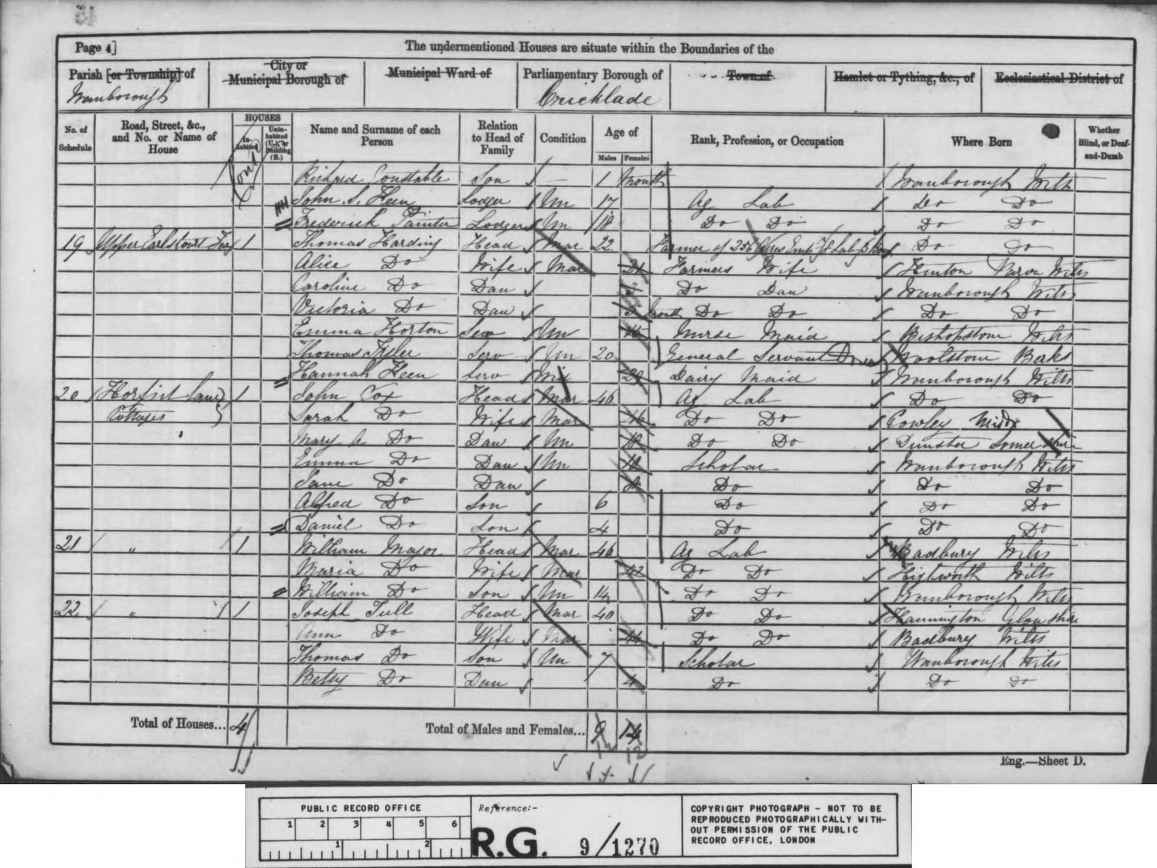 Page 4]
The undermentioned Houses are situate within the Boundaries of the
Parish [or Township] of Wanborough
City or Municipal Borough of
Municipal Ward of
Parliamentary Borough of Cricklade
Town of
Hamlet or Tything, &c., of
Ecclesiastical District of
No. of Schedule
Road, Street, &c., and No. or Name of House
HOUSES
Inhabited
Uninhabited (U.), or Building (B.)
Name and Surname of each Person
Relation to Head of Family
Condition
Age of
Males
Females
Rank, Profession, or Occupation
Where Born
Whether Blind, or Deaf-and-Dumb
Richard Constable Son – 1 Month Wanborough Wilts
John Keen Lodger Un 17 Ag Lab Do Do
Frederick Painter Lodger Un 18 Do Do Do Do
19 Upper Earlscourt 1 Thomas Harding Head Mar 22 Farmer of Do Do
Alice Do Wife Mar 21 Farmers Wife Hinton Wilts
Caroline Do Dau Do Dau Wanborough Wilts
Victoria Do Dau Do Do Do Do
Emma Horton Un 16 Nurse Maid Bishopstone Wilts
Thomas Serv Un 20 General Servant Woolstone Berks
Hannah Keen Serv Dairy Maid Wanborough Wilts
20 Lane Cottages 1 John Cox Head Mar 46 Ag Lab Do Do
Sarah Do Wife Mar 46 Do Do Cowley Midx
Mary A. Do Dau Un Do Do Dunster
Emma Do Dau Un Scholar Wanborough Wilts
Jane Do Dau Do Do Do
Alfred Do Son 6 Do Do Do
Daniel Do Son 4 Do Do Do
21 " 1 William Major Head Mar 46 Ag Lab Badbury Wilts
Maria Do Wife Mar 42 Do Do Highworth Wilts
William Do Son Un 14 Do Do Wanborough Wilts
22 " 1 Joseph Tull Head Mar 40 Do Do Hannington
Ann Do Wife Mar 46 Do Do Badbury Wilts
Thomas Do Son Un 7 Scholar Wanborough Wilts
Betsy Do Dau Do Do Do
Total of Houses... 4
Total of Males and Females... 9 14
Eng.—Sheet D.
PUBLIC RECORD OFFICE
1 2 3 4 5 6
1 2
Reference:-
R.G. 9/1270
COPYRIGHT PHOTOGRAPH - NOT TO BE
REPRODUCED PHOTOGRAPHICALLY WITH-
OUT PERMISSION OF THE PUBLIC
RECORD OFFICE, LONDON